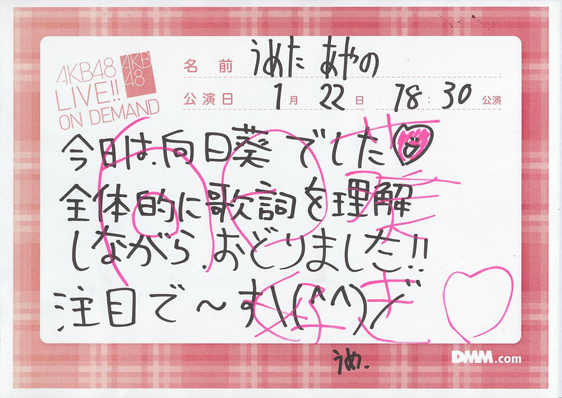 AKB48
LIVE!!
ON DEMAND
AKB
48
名前 うめた あやの
公演日 1月 22日 18:30 公演
今日は、向日葵でした
全体的に歌詞を理解
しながら、おどりました!!
注目で〜す\(^^)/
うめ.
DMM.com